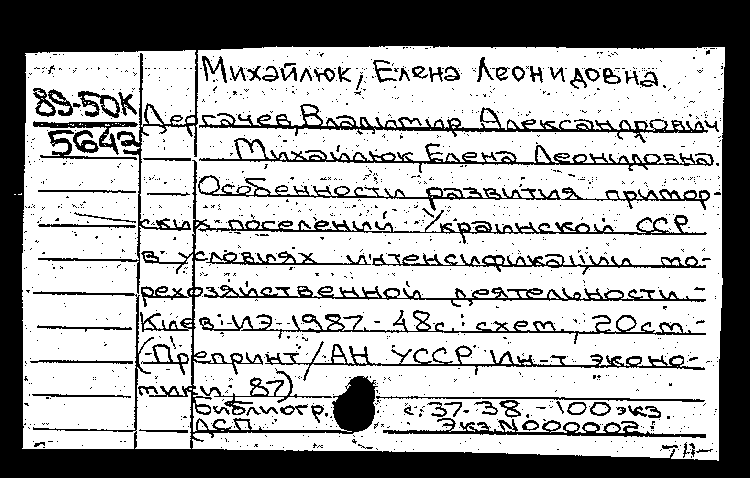 Михайлюк, Елена Леонидовна.
89-50К
5643
Дергачев, Владимир Александрович
Михайлюк, Елена Леонидовна.
Особенности развития примор-
ских поселений Украинской ССР
в условиях интенсификации мо-
рехозяйственной деятельности.-
Киев: ИЭ, 1987.- 48с.: схем.; 20см.-
(Препринт / АН УССР, Ин-т эконо-
мики; 87).
Библиогр. с. 37-38. - 100 экз.
ДСП. Экз.N000002.